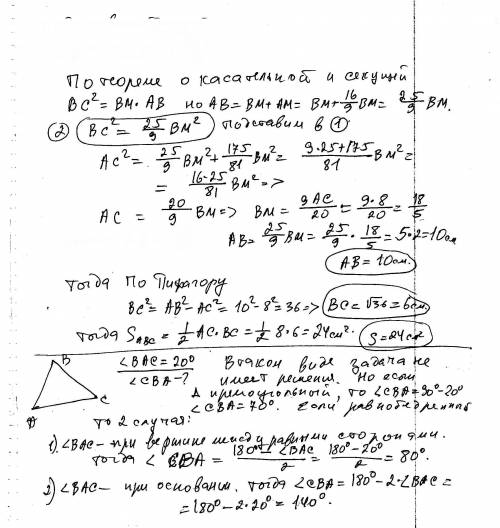 По теореме о касательной и секущий
BC² = BM · AB но AB = BM + AM = BM + 16/9 BM = 25/9 BM.
② BC² = 25/9 BM² подставим в ①
AC² = 25/9 BM² + 175/81 BM² = 9·25+175/81 BM² =
= 16·25/81 BM² =>
AC = 20/9 BM => BM = 9AC/20 = 9·8/20 = 18/5
AB = 25/9 BM = 25/9 · 18/5 = 5·2 = 10см
AB = 10см.
Тогда по Пифагору
BC² = AB² - AC² = 10² - 8² = 36 => BC = √36 = 6см.
Тогда S_ABC = 1/2 AC · BC = 1/2 8·6 = 24см². S = 24см²
B
C
∠BAC = 20°
∠CBA - ?
В таком виде задача не
имеет решения. Но если
Δ прямоугольный, то ∠CBA = 90° - 20°
∠CBA = 70°. Если равнобедренный
то 2 случая:
1) ∠BAC - при вершине между равными сторонами.
Тогда ∠CBA = 180° - ∠BAC/2 = 180° - 20°/2 = 80°.
2) ∠BAC - при основании. Тогда ∠CBA = 180° - 2·∠BAC =
= 180° - 2·20° = 140°.